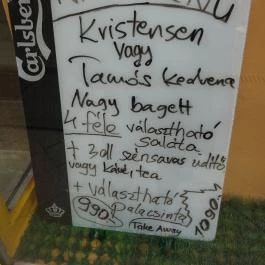 Carlsberg
Kristensen
vagy
Tamás kedvenc
Nagy bagett
4 féle választható
saláta
+ 3dl szénsavas üdítő
vagy kávé, tea
+ választható
palacsinta
990,-
1090,-
Take Away